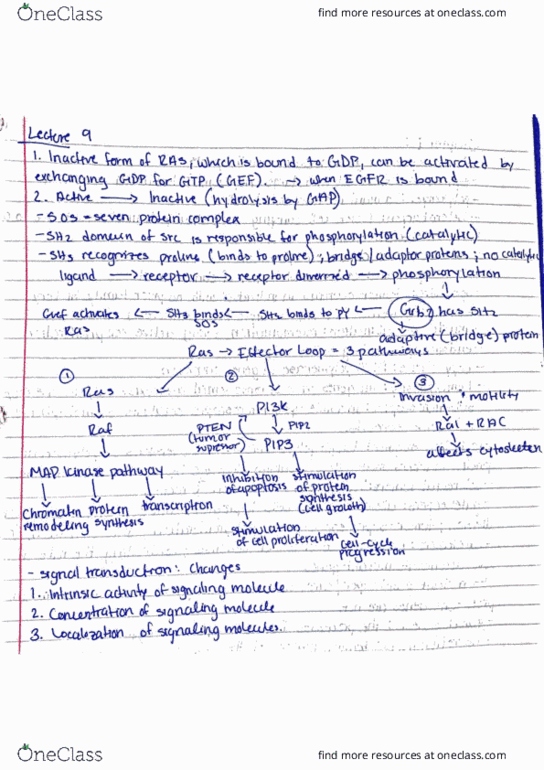 OneClass
find more resources at oneclass.com
Lecture 9
1. Inactive form of RAS, which is bound to GDP, can be activated by
exchanging GDP for GTP (GEF). → when EGFR is bound
2. Active → Inactive (hydrolysis by GAP)
- SOS = seven protein complex
- SH2 domain of src is responsible for phosphorylation (catalytic)
- SH3 recognizes proline (binds to proline); bridge/adaptor proteins; no catalytic
ligand → receptor → receptor dimerized → phosphorylation
Gef activates Ras ← SH3 binds SOS ← SH2 binds to PY ← Grb2 has SH2
adaptive (bridge) protein
Ras → Effector Loop = 3 pathways
① ② ③
Ras PI3K invasion + motility
Raf PTEN (tumor supressor) PIP2 Ral + RAC
PIP3 affects cytoskeleton
MAP kinase pathway
Chromatin remodeling protein synthesis transcription
inhibition of apoptosis stimulation of protein synthesis (cell growth)
stimulation of cell proliferation cell-cycle progression
- signal transduction: changes
1. Intrinsic activity of signaling molecule
2. Concentration of signaling molecule
3. Localization of signaling molecules.
OneClass
find more resources at oneclass.com